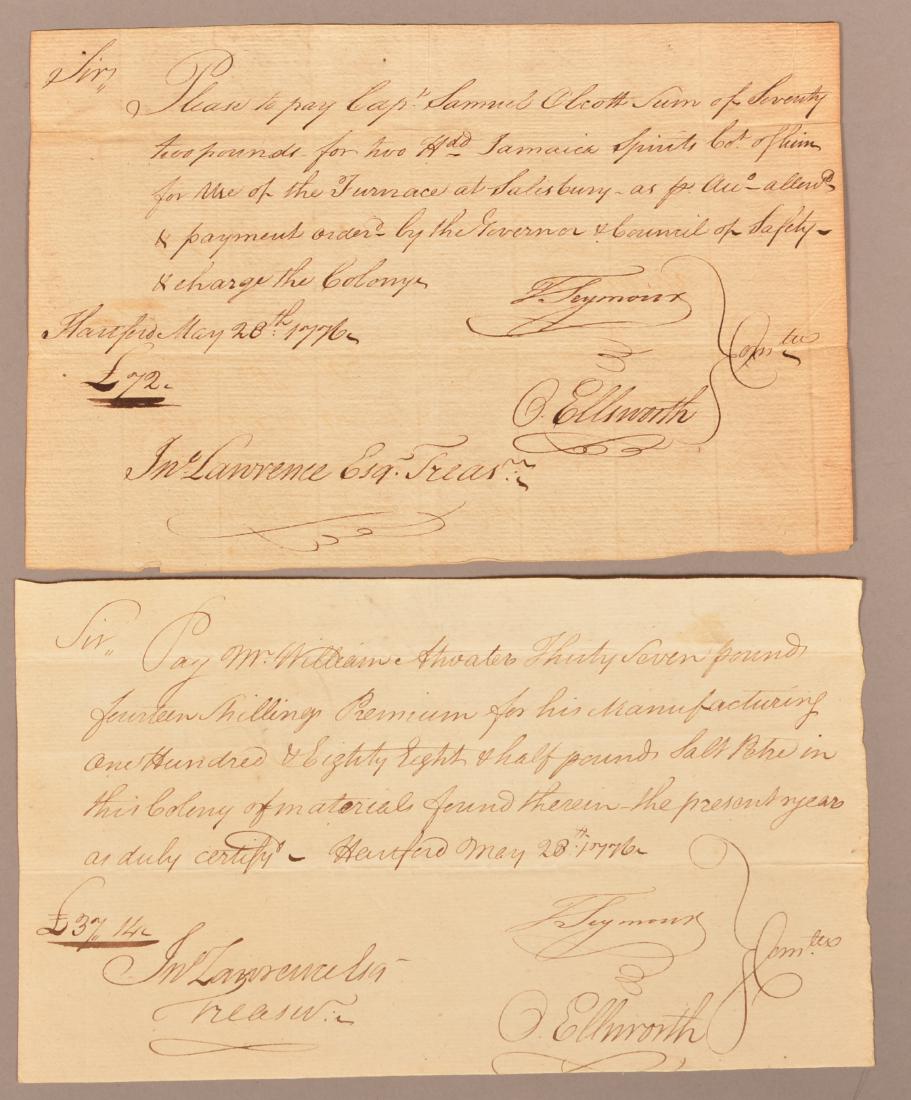 Sir,,
Please to pay Capt. Samuel Olcott Sum of Seventy
two pounds for two Hdd Jamaica Spirits bot. of him
for Use of the Furnace at Salisbury - as pr. Acco - allowd
& payment orderd. by the Governor & Council of Safety -
& charge the Colony
Hartford May 28th. 1776
T. Seymour
&
O. Ellsworth
Comtee
£72
Jno. Lawrence Esqr. Treasr.
Sir,,
Pay Mr. William Atwater Thirty Seven pounds
fourteen Shillings Premium for his Manufacturing
One Hundred & Eighty Eight & half pounds Salt Petre in
this Colony of materials found therein - the present year
as duly certifyd - Hartford May 28th. 1776
£37 14
T. Seymour
&
O. Ellsworth
Comtee
Jno. Lawrence Esq
Treasur.